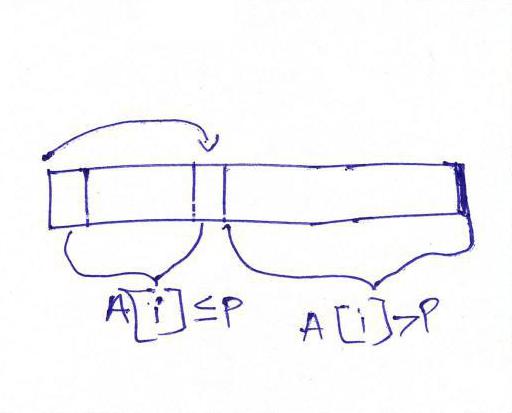 A[i]≤P
A[i]>P